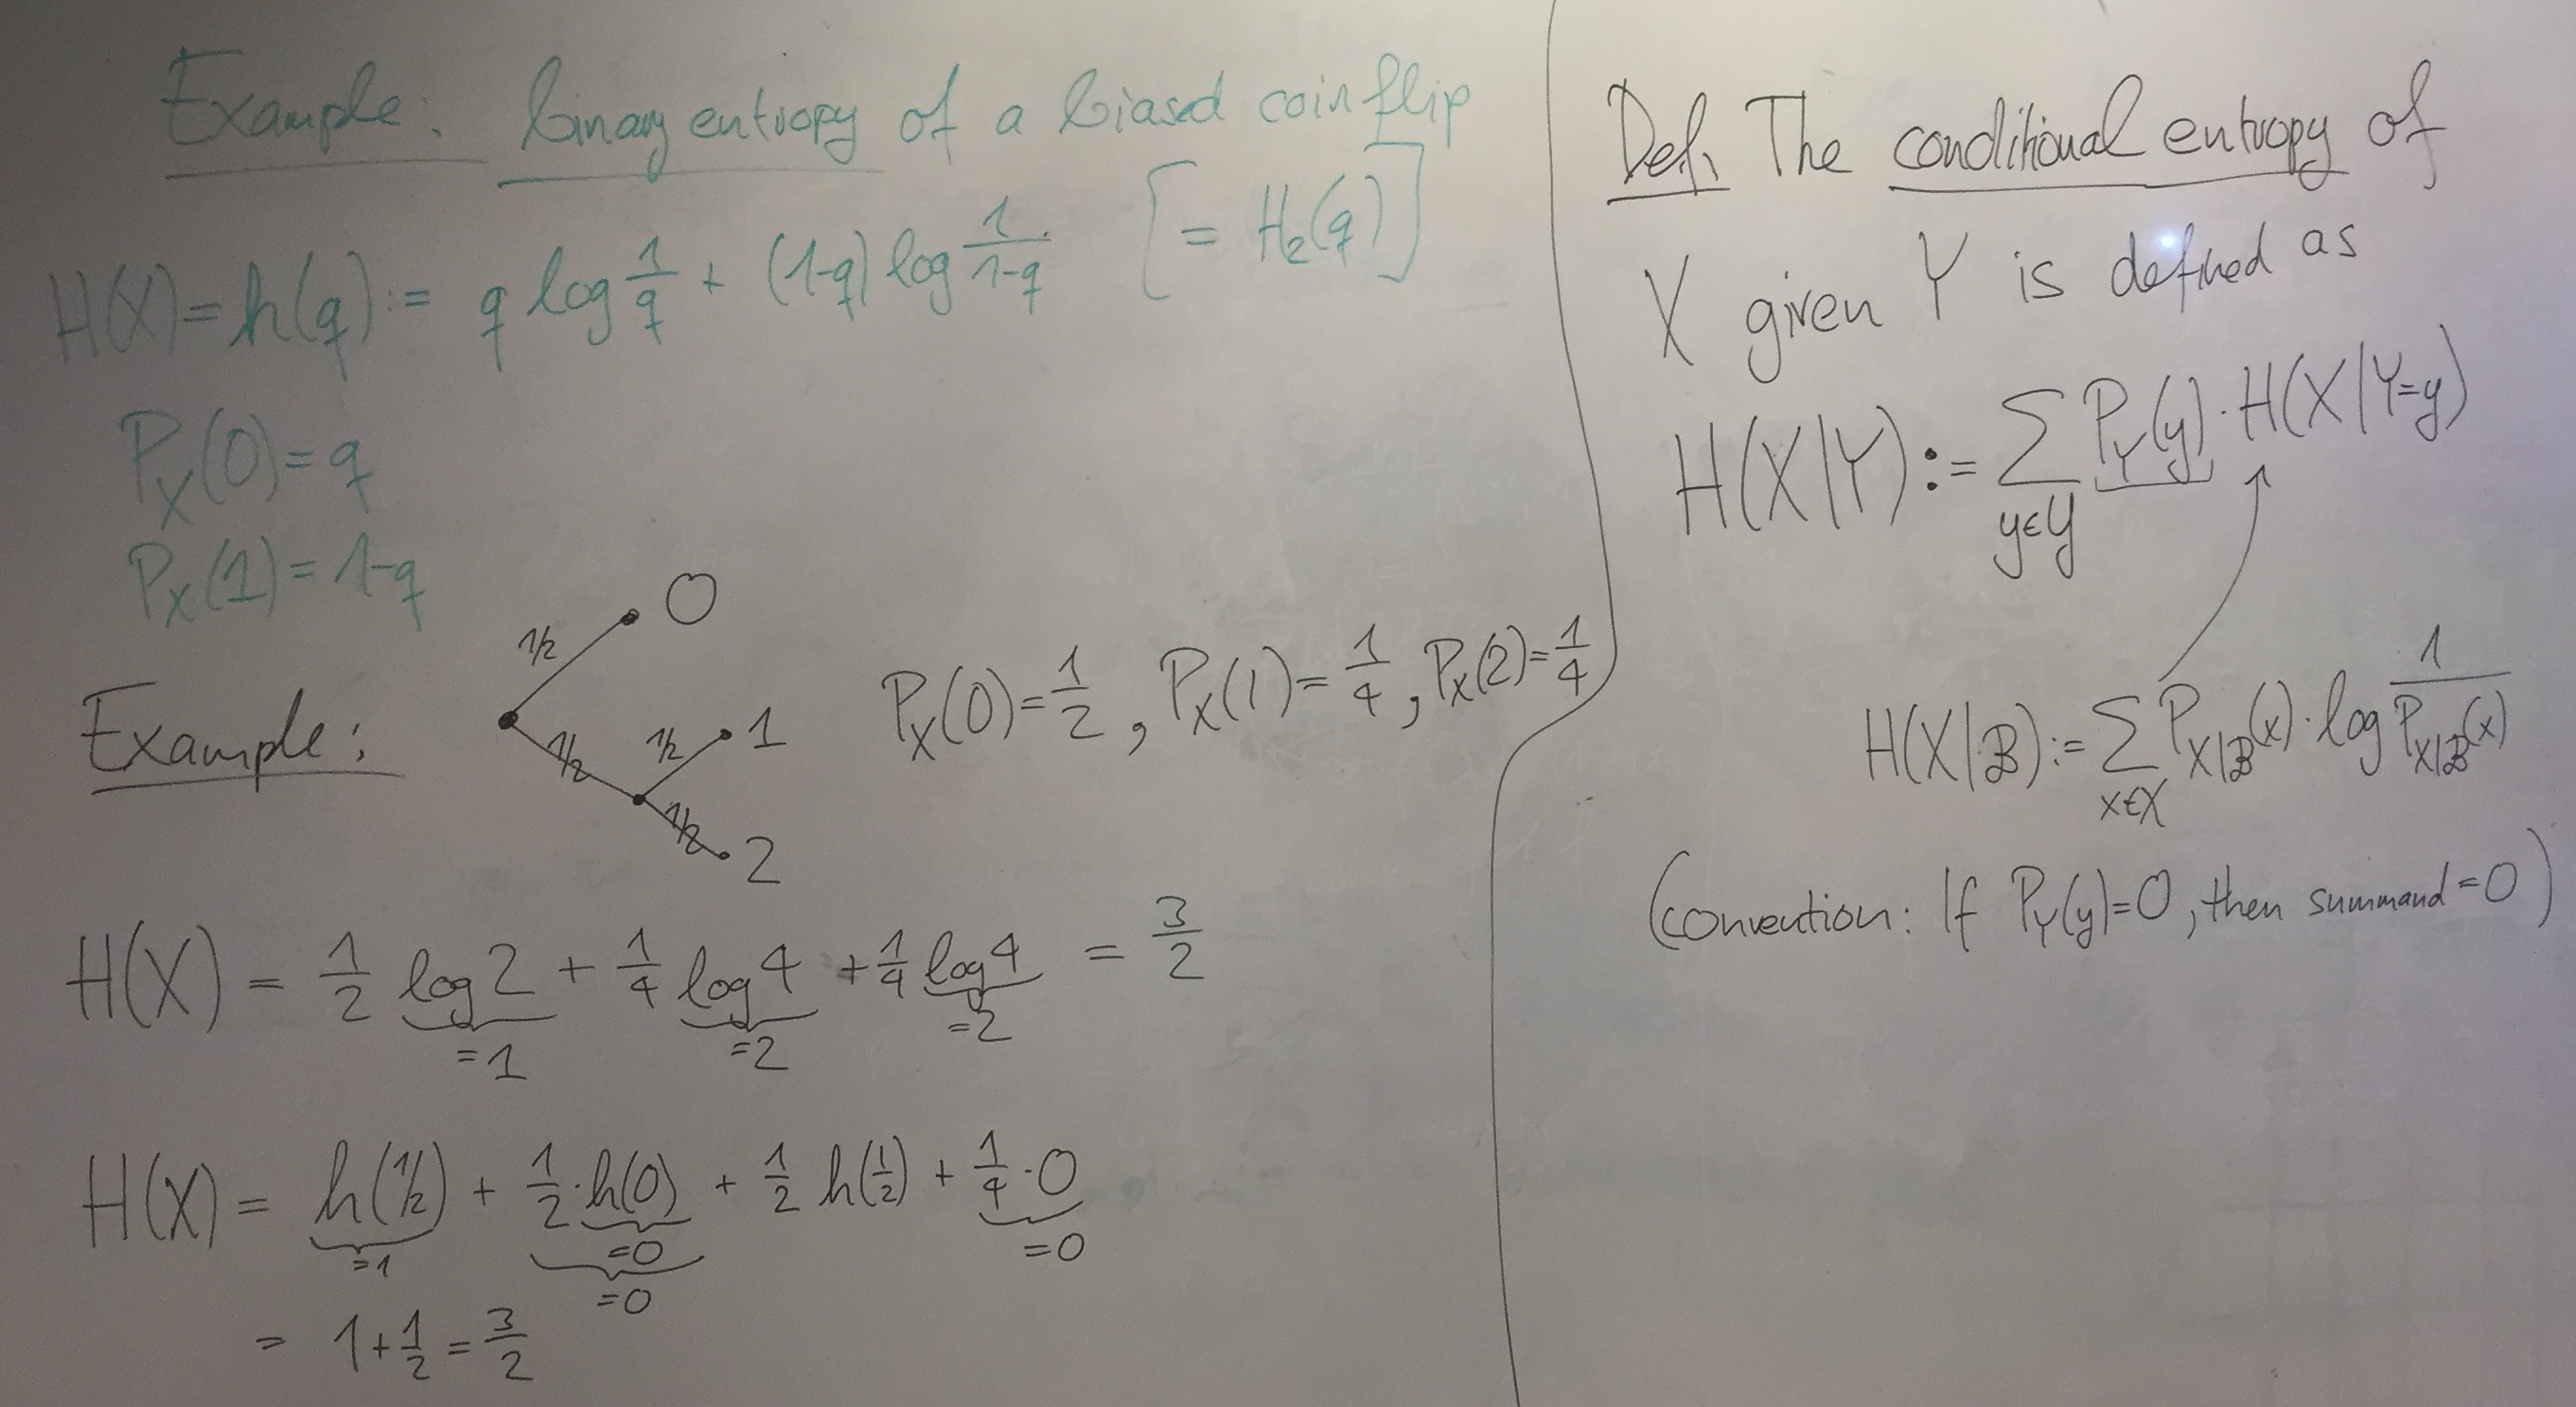 Example: binary entropy of a biased coin flip
H(X) = h(q) := q log 1/q + (1-q) log 1/(1-q) [= H₂(q)]
P_X(0) = q
P_X(1) = 1-q
Example:
1/2 0
1/2 1/2 1
1/2 2
P_X(0) = 1/2, P_X(1) = 1/4, P_X(2) = 1/4
H(X) = 1/2 log 2 + 1/4 log 4 + 1/4 log 4 = 3/2
=1 =2 =2
H(X) = h(1/2) + 1/2 · h(0) + 1/2 h(1/2) + 1/4 · 0
=1 =0 =0
=0
= 1 + 1/2 = 3/2
Def: The conditional entropy of
X given Y is defined as
H(X|Y) := ∑ P_Y(y) · H(X|Y=y)
y∈𝒴
H(X|ℬ) := ∑ P_X|ℬ(x) · log 1/P_X|ℬ(x)
x∈𝒳
(convention: If P_Y(y)=0, then summand=0)